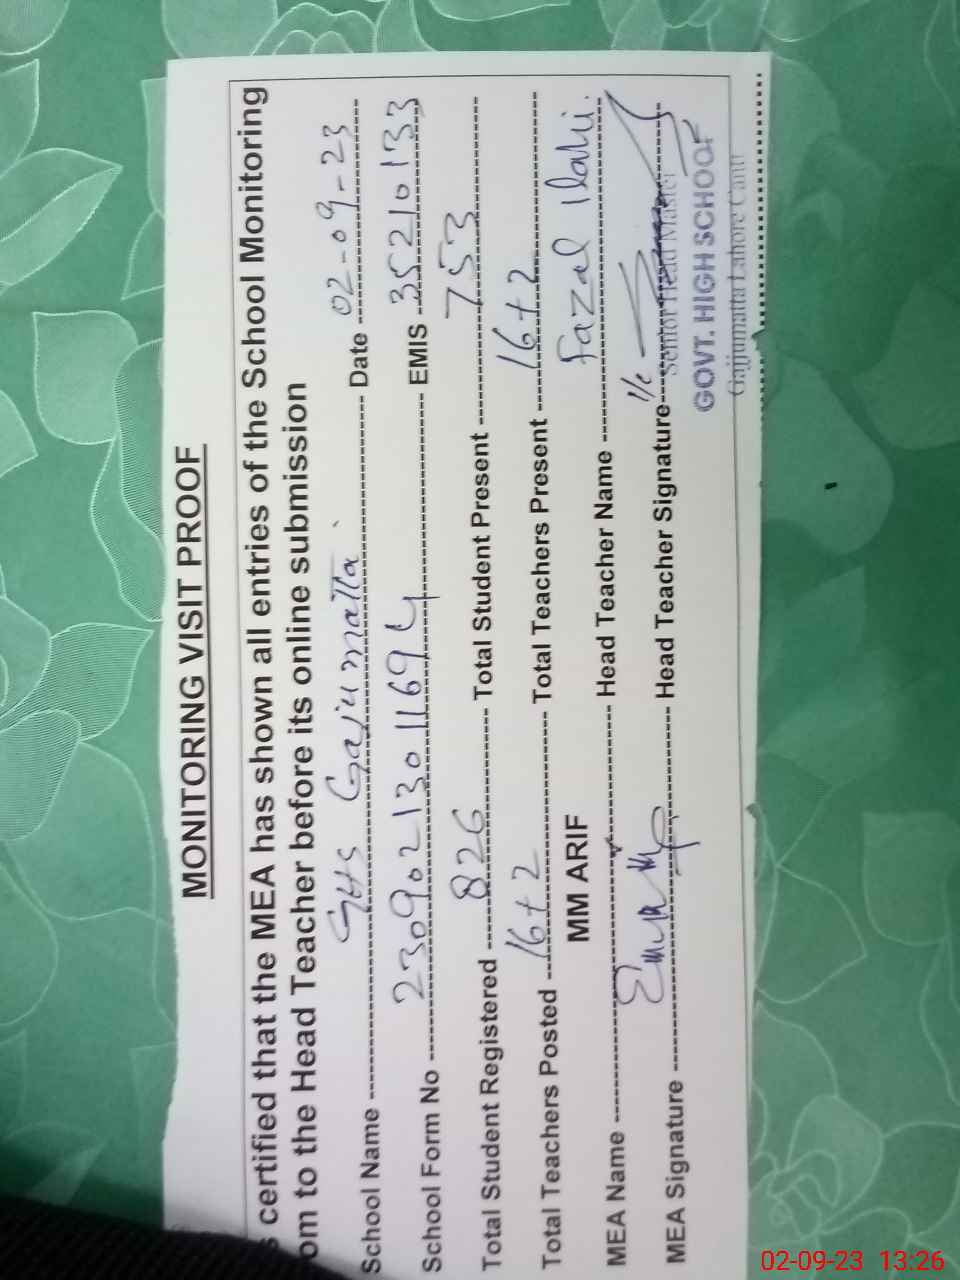 MONITORING VISIT PROOF
s certified that the MEA has shown all entries of the School Monitoring
om to the Head Teacher before its online submission
School Name GHS Gajju matta. Date 02-09-23
School Form No 23090213011694 EMIS 35210133
Total Student Registered 826 Total Student Present 753
Total Teachers Posted 16+2 Total Teachers Present 16+2
MM ARIF
MEA Name Head Teacher Name Fazal Ilahi.
MEA Signature Head Teacher Signature I/c
Senior Head Master
GOVT. HIGH SCHOOL
Gajjumatta Lahore Cantt
02-09-23 13:26